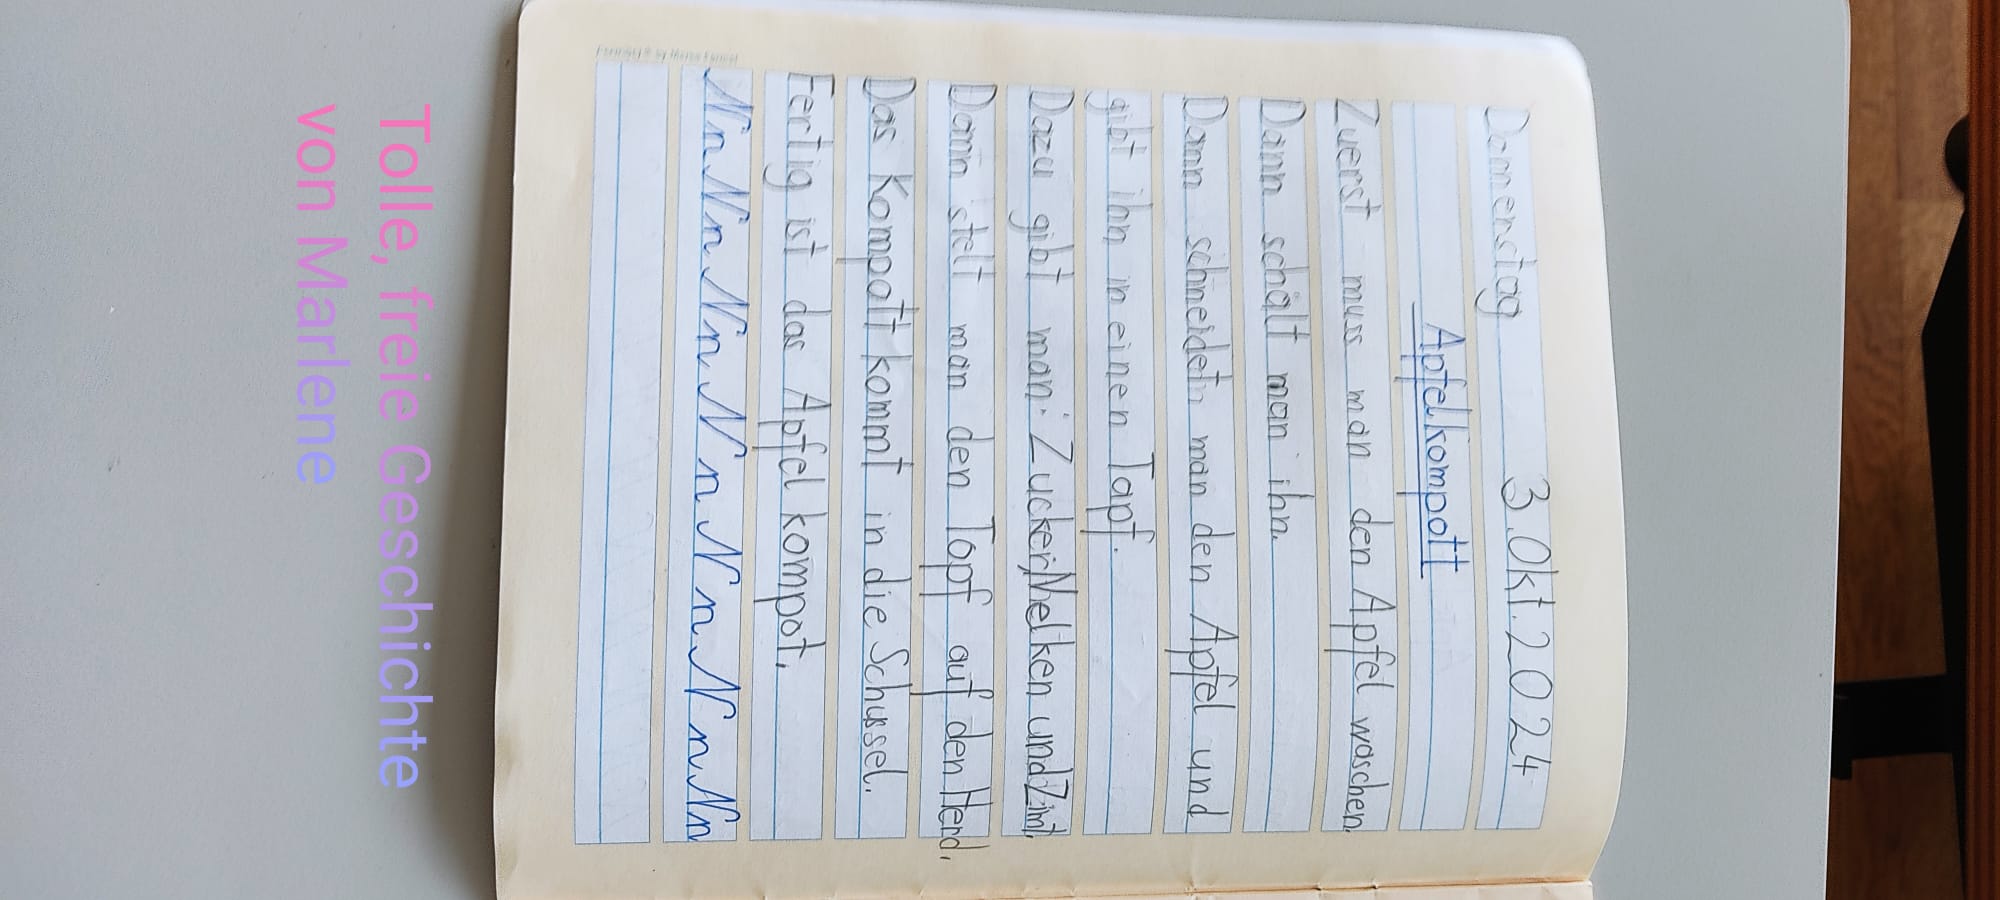 Donnerstag 3.Okt.2024
Apfelkompott
Zuerst muss man den Apfel waschen.
Dann schält man ihn.
Dann schneidet man den Apfel und
gibt ihn in einen Topf.
Dazu gibt man: Zucker, Nelken und Zimt.
Dann stellt man den Topf auf den Herd.
Das Kompott kommt in die Schüssel.
Fertig ist das Apfel kompot.
Nn Nn Nn Nn Nn Nn Nn
Tolle, freie Geschichte
von Marlene